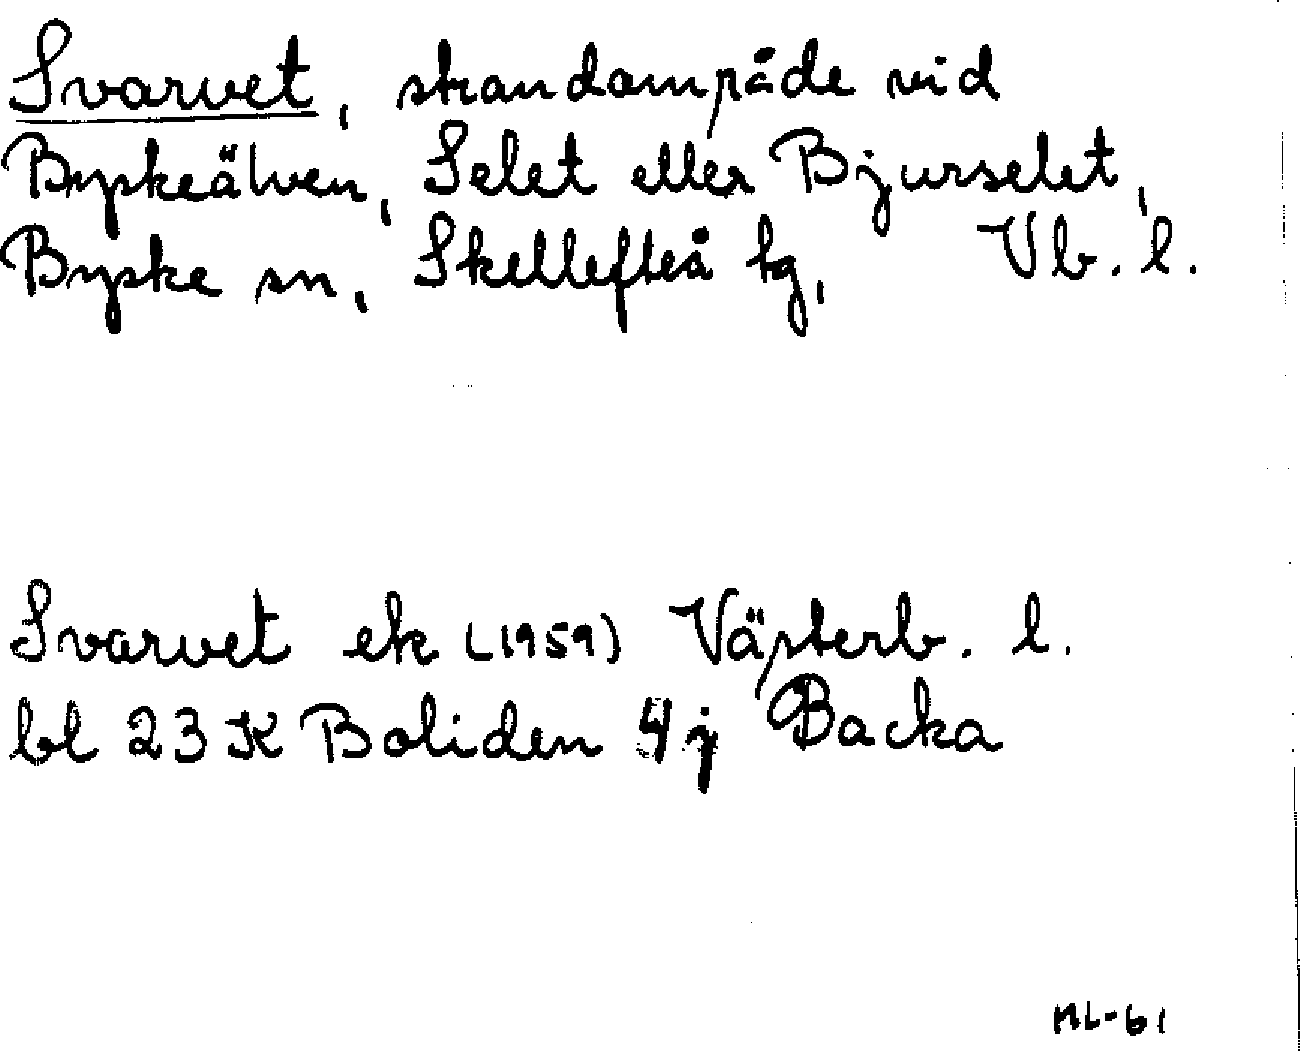 Svarvet, strandområde vid
Byskeälven, Selet eller Bjurselet,
Byske sn, Skellefteå tg, Vb. l.
Svarvet ek (1959) Västerb. l.
bl 23 K Boliden 4 j Backa
ML-61